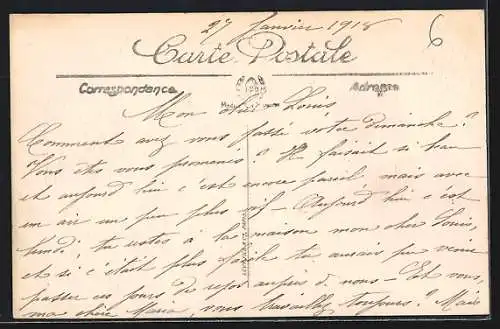 27 Janvier 1918
6
Carte Postale
Correspondance
Adresse
Mon cher Louis
Comment avez vous passé votre dimanche ?
Vous êtes vous promenés ? Il faisait si beau
et aujourd hui c'est encore pareil mais avec
un air un peu plus vif - Aujourd hui c'est
lundi, tu restes à la maison mon cher Louis,
et si c'était plus facile tu aurais pu venir
passer ces jours de repos auprès de nous - Et vous,
ma chère Maria, vous travaillez toujours ? Mais